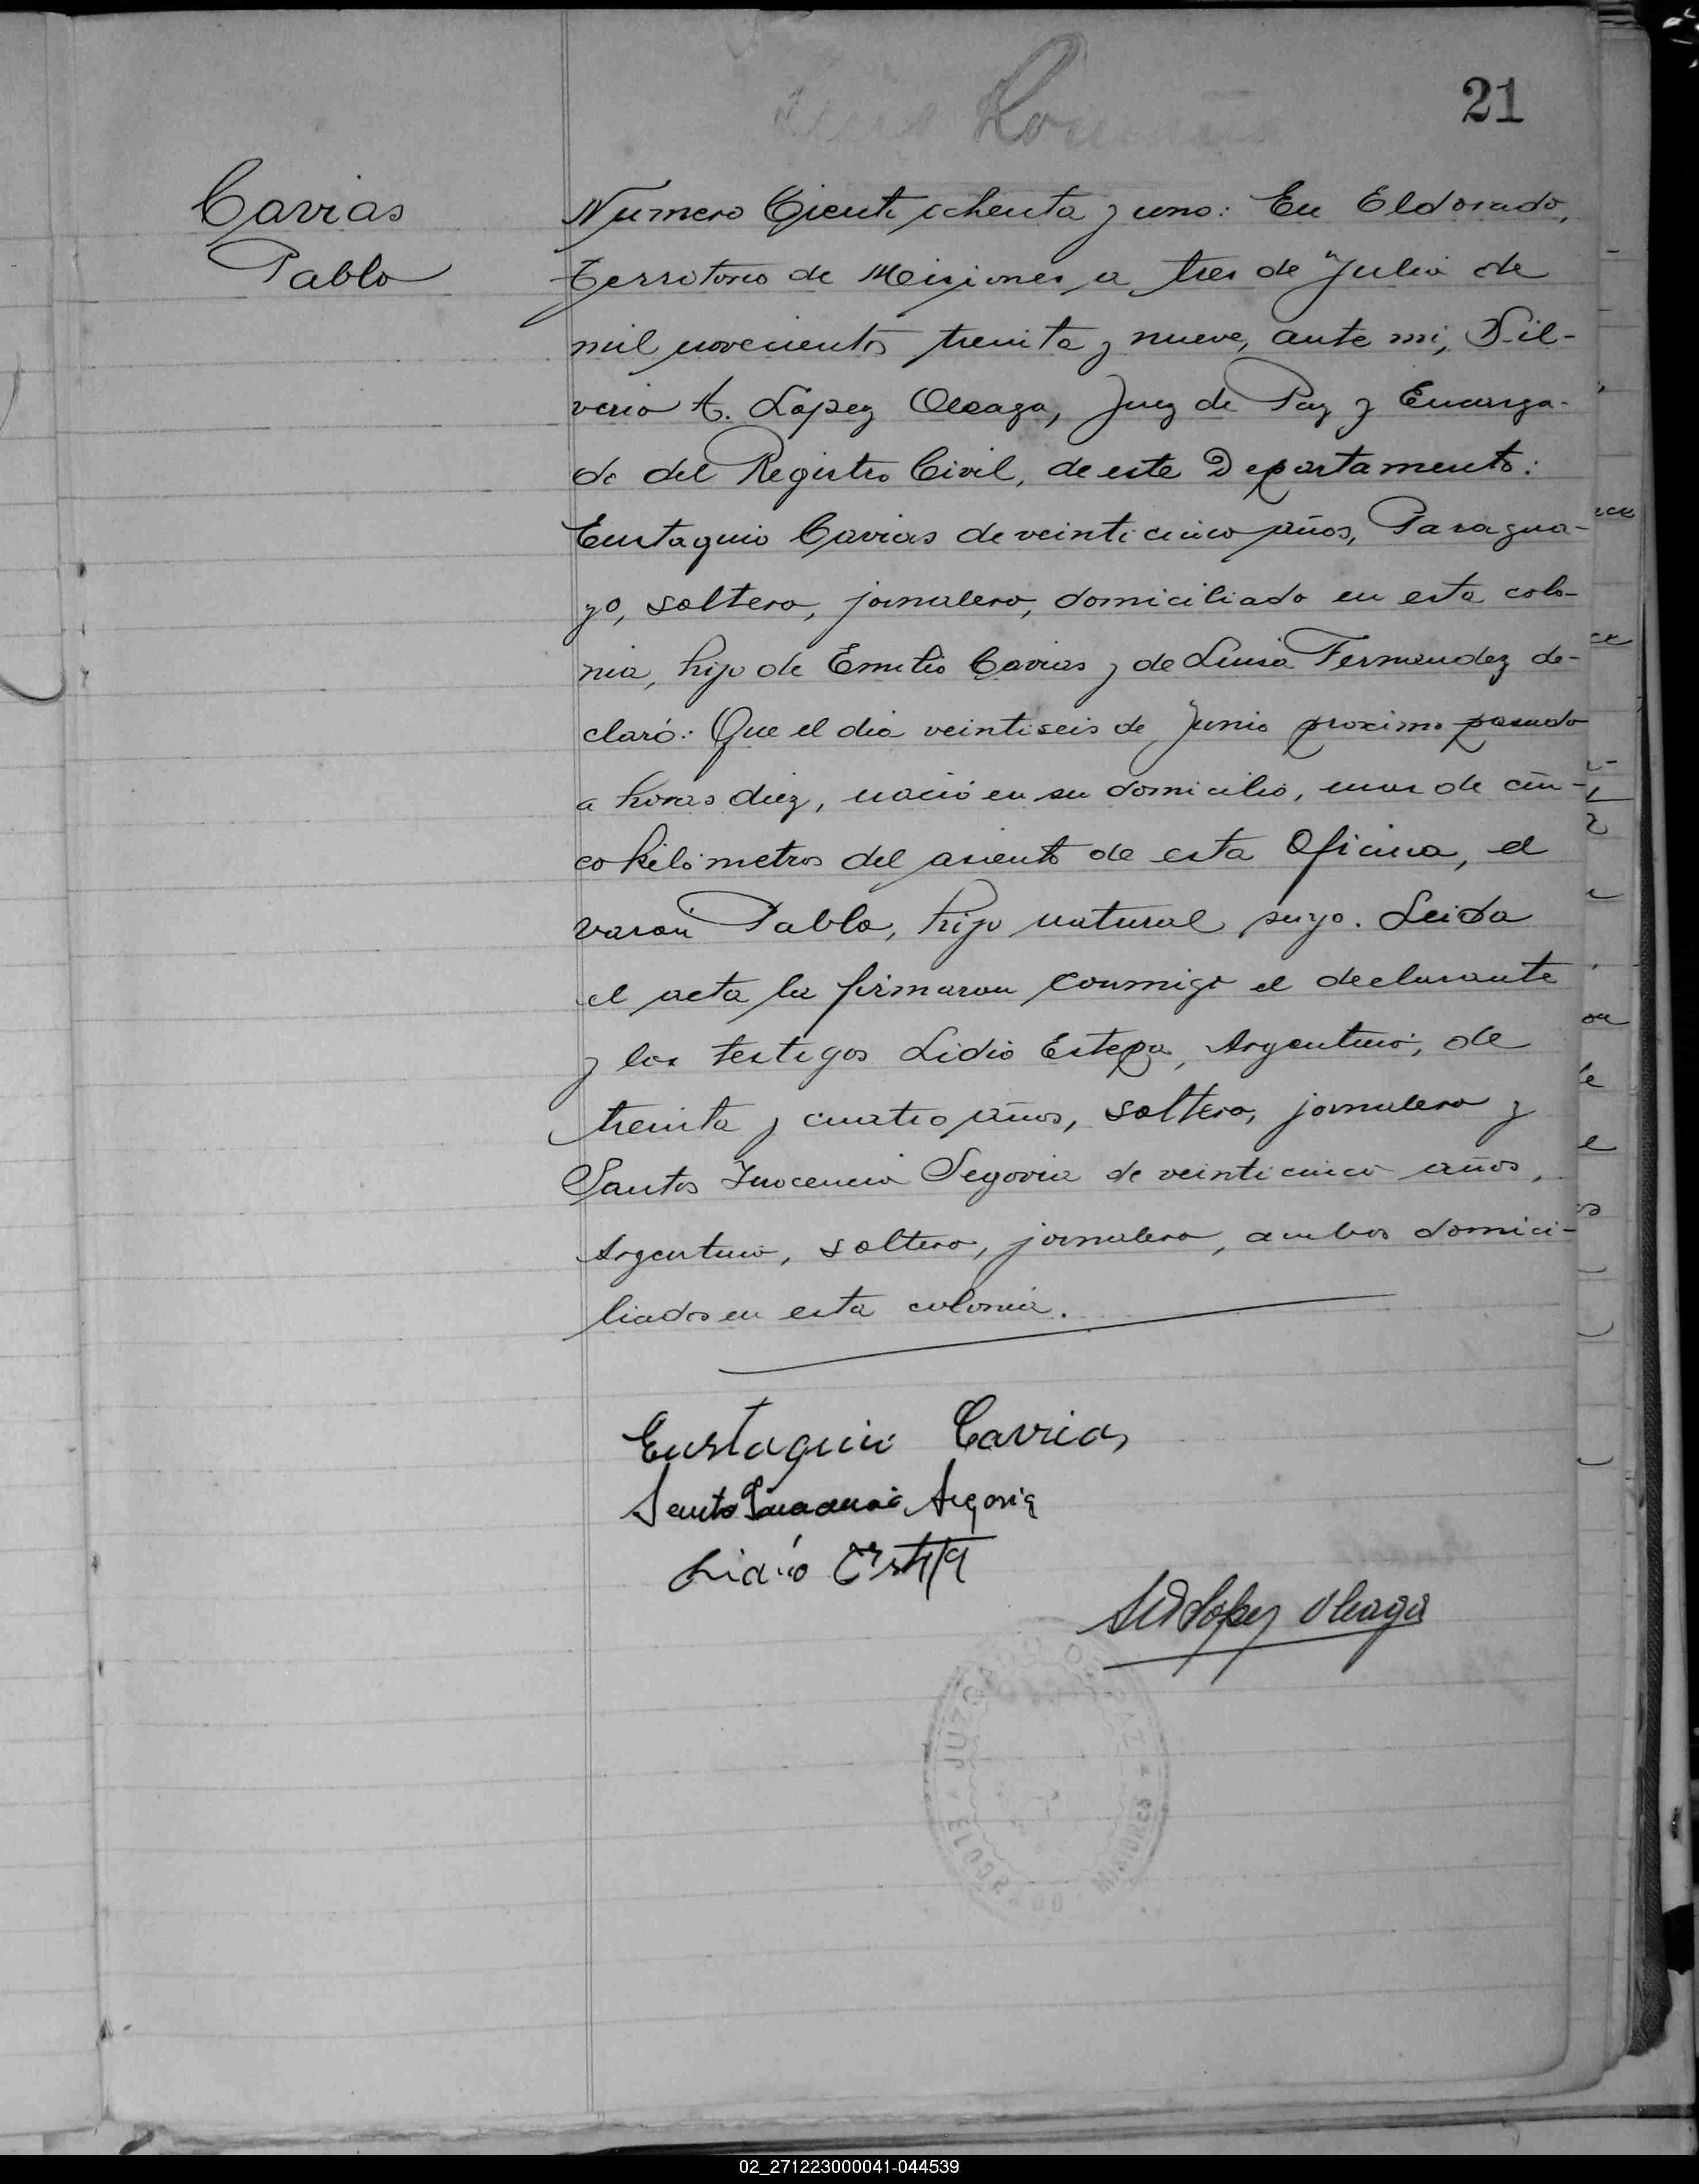 21
Cavias
Pablo
Numero Ciento ochenta y uno: En Eldorado,
Territorio de Misiones, a tres de Julio de
mil novecientos treinta y nueve, ante mi, Sil-
verio A. López Oleaga, Juez de Paz y Encarga-
do del Registro Civil, de este Departamento:
Eustaquio Cavias de veinticinco años, Paragua-
yo, soltero, jornalero, domiciliado en esta colo-
nia, hijo de Emilio Cavias y de Luisa Fernandez de-
claró: Que el dia veintiseis de Junio proximo pasado
a horas diez, nació en su domicilio, mas de cin-
co kilómetros del asiento de esta Oficina, el
varón Pablo, hijo natural suyo. Leida
el acta la firmaron conmigo el declarante
y los testigos Lidio Estepa, Argentino, de
treinta y cuatro años, soltero, jornalero y
Santos Inocencio Segovia de veinticinco años,
Argentino, soltero, jornalero, ambos domici-
liados en esta colonia.
Eustaquio Cavrias
Santo Segovia
Lidio
Lopez Oleaga
JUZGADO PAZ * MISIONES
02_271223000041-044539